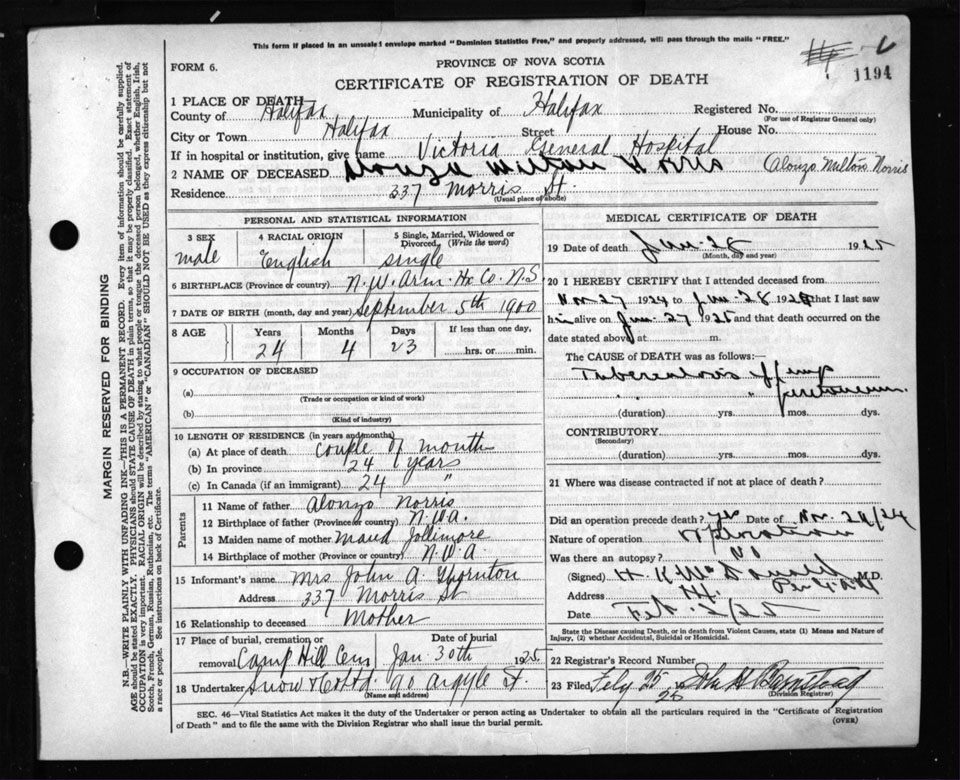 This form if placed in an unsealed envelope marked "Dominion Statistics Free," and properly addressed, will pass through the mails "FREE."
FORM 6.
PROVINCE OF NOVA SCOTIA
CERTIFICATE OF REGISTRATION OF DEATH
1194
1 PLACE OF DEATH
County of Halifax Municipality of Halifax Registered No.
(For use of Registrar General only)
City or Town Halifax Street House No.
If in hospital or institution, give name Victoria General Hospital
2 NAME OF DECEASED Alonza Milton Norris Alonzo Milton Norris
Residence 337 Morris St.
(Usual place of abode)
PERSONAL AND STATISTICAL INFORMATION
3 SEX 4 RACIAL ORIGIN 5 Single, Married, Widowed or Divorced, (Write the word)
male English single
6 BIRTHPLACE (Province or country) N.W. Arm Hx Co. N.S
7 DATE OF BIRTH (month, day and year) September 5th 1900
8 AGE Years Months Days If less than one day,
24 4 23 ...hrs. or ...min.
9 OCCUPATION OF DECEASED
(a)
(Trade or occupation or kind of work)
(b)
(Kind of industry)
10 LENGTH OF RESIDENCE (in years and months)
(a) At place of death couple of month
(b) In province 24 years
(c) In Canada (if an immigrant) 24 "
Parents
11 Name of father Alonzo Norris
12 Birthplace of father (Province or country) N.W.A.
13 Maiden name of mother Maud Jollimore
14 Birthplace of mother (Province or country) N.W.A
15 Informant's name Mrs John A. Thornton
Address 337 Morris St
16 Relationship to deceased Mother
17 Place of burial, cremation or removal Camp Hill Cem Date of burial Jan 30th 1925
18 Undertaker Snow & Co Ltd 90 Argyle St.
(Name and address)
MEDICAL CERTIFICATE OF DEATH
19 Date of death Jan-28 1925
(Month, day and year)
20 I HEREBY CERTIFY that I attended deceased from
Nov-27 1924 to Jan-28 1925 that I last saw
him alive on Jan-27 1925 and that death occurred on
date stated above at m.
The CAUSE OF DEATH was as follows:
Tuberculosis of lung
" " peritoneum.
(duration) yrs. mos. dys.
CONTRIBUTORY
(Secondary)
(duration) yrs. mos. dys.
21 Where was disease contracted if not at place of death?
Did an operation precede death? yes Date of Nov. /24
Nature of operation
Was there an autopsy? No
(Signed) H K McDonald M.D.
Address Hx.
Date Feb. 2/25
State the Disease causing Death, or in death from Violent Causes, state (1) Means and Nature of
Injury, (2) whether Accidental, Suicidal or Homicidal.
22 Registrar's Record Number
23 Filed Feby 25 1925 John H Barnstead
(Division Registrar)
SEC. 46—Vital Statistics Act makes it the duty of the Undertaker or person acting as Undertaker to obtain all the particulars required in the "Certificate of Registration
of Death" and to file the same with the Division Registrar who shall issue the burial permit.
(OVER)
MARGIN RESERVED FOR BINDING
N.B.—WRITE PLAINLY WITH UNFADING INK—THIS IS A PERMANENT RECORD. Every item of information should be carefully supplied.
AGE should be stated EXACTLY. PHYSICIANS should STATE CAUSE OF DEATH in plain terms, so that it may be properly classified. Exact statement of
OCCUPATION is very important. RACIAL ORIGIN will be described by stating to what people or tongue the deceased person belonged, whether English, Irish,
Scotch, French, German, Russian, Ruthenian, etc. The terms "AMERICAN" or "CANADIAN" SHOULD NOT BE USED as they express citizenship but not
a race or people. See instructions on back of Certificate.